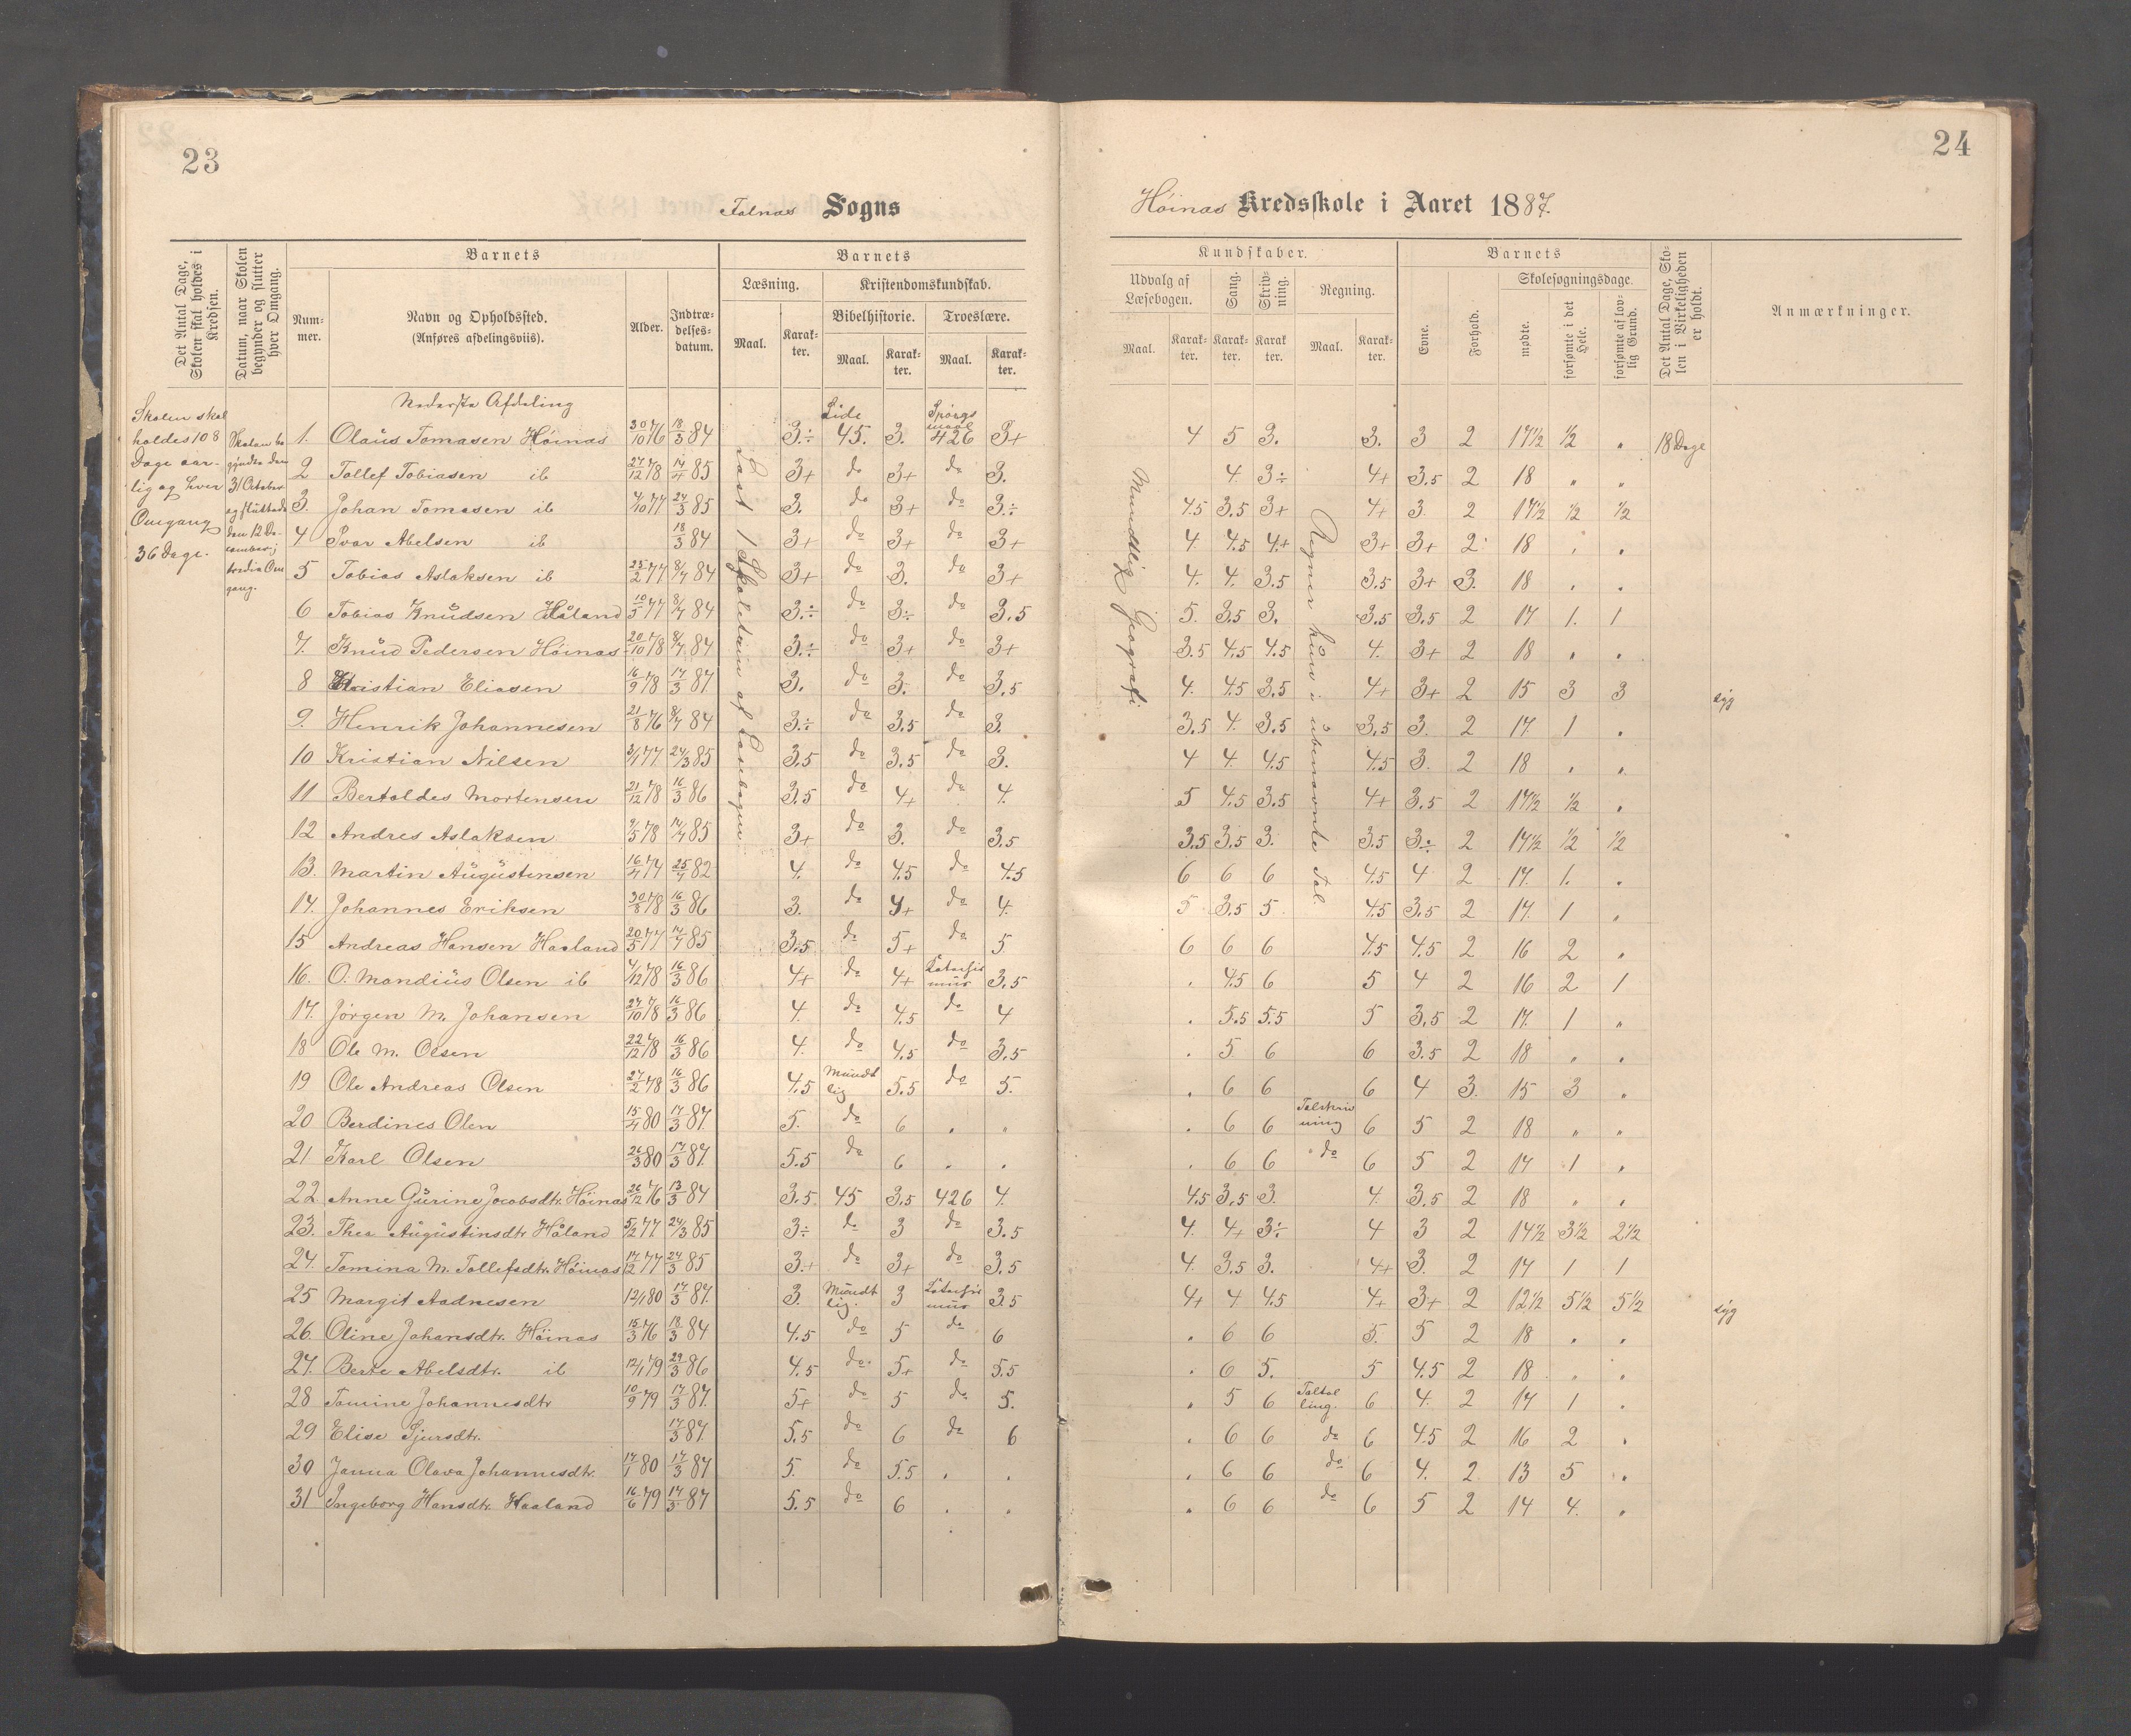 23
Falnæs Sogns
Det Antal Dage, Skolen skal holdes i Kredsen.
Datum, naar Skolen begynder og slutter hver Omgang.
Barnets
Nummer.
Navn og Opholdssted.
(Anføres afdelingsviis).
Alder.
Indtrædelsesdatum.
Barnets
Læsning.
Maal.
Karakter.
Kristendomskundskab.
Bibelhistorie.
Maal.
Karakter.
Troeslære.
Maal.
Karakter.
Skolen skal
holdes 108
Dage aar-
lig og hver
Omgang
36 Dage.
Skolen be
gyndte den
31 October
og sluttede
den 12 De-
cember i
tredie Om
gang.
Nederste Afdeling
Læst 1 Skoletrin af Læsebogen
Side
Spørgs
maal
1. Olaus Tomasen Höinas 30/10 76 18/3 84 3÷ 45. 3. 426 3+
2 Tollef Tobiasen ib 27/12 78 14/4 85 3+ do 3+ do 3.
3. Johan Tomasen ib 4/10 77 24/3 85 3. do 3+ do 3÷
4 Ivar Abelsen ib 18/3 84 3+ do 3+ do 3+
5 Tobias Aslaksen ib 25/2 77 8/7 84 3+ do 3. do 3+
6 Tobias Knudsen Håland 10/5 77 8/7 84 3÷ do 3÷ do 3.5
7. Knud Pedersen Höinas 20/10 78 8/7 84 3÷ do 3+ do 3+
8 Kristian Eliasen 16/9 78 17/3 87 3. do 3. do 3.5
9. Henrik Johannesen 21/8 76 8/7 84 3÷ do 3.5 do 3.
10 Kristian Nilsen 3/1 77 24/3 85 3.5 do 3.5 do 3.
11 Bertoldes Mortensen 21/12 78 16/3 86 3.5 do 4+ do 4.
12 Andres Aslaksen 9/5 78 14/4 85 3+ do 3. do 3.5
13. Martin Augustensen 16/4 74 25/4 82 4. do 4.5 do 4.5
14. Johannes Eriksen 30/8 78 16/3 86 3. do 4+ do 4.
15 Andreas Hansen Haaland 20/5 77 14/4 85 3.5 do 5+ do 5
16. O. Mandius Olsen ib 4/12 78 16/3 86 4+ do 4+ Katachis mus 3.5
17. Jörgen M. Johansen 27/10 78 16/3 86 4. do 4.5 do 4
18 Ole M. Olsen 22/12 78 16/3 86 4. do 4.5 do 3.5
19 Ole Andreas Olsen 27/2 78 16/3 86 4.5 Mundt lig 5.5 do 5.
20 Berdines Olen 15/4 80 17/3 87. 5. do 6 . "
21 Karl Olsen 26/3 80 17/3 87. 5.5 do 6 . .
22. Anne Gurine Jocobsdtr. Höinas 26/12 76 13/3 84 3.5 45 3.5 426 4.
23. Thea Augustinsdtr Håland 5/12 77 24/3 85 3÷ do 3 do 3.5
24. Tomina M. Tollefsdtr. Höinas 17/12 77 24/3 85 3+ do 3+ do 3.5
25 Margit Aadnesen 12/1 80 17/3 87. 3. Mundt lig. 3 Katachis mus 3.5
26. Oline Johansdtr. Höinas 15/3 76 18/3 84 4.5 do 5 do 6
27. Berte Abelsdtr. ib 12/1 79 29/3 86 4.5 do 5+ do 5.5
28 Tomine Johannesdtr 10/9 79 17/3 87. 5+ do 5 do 5.
29 Elise Sjursdtr. 17/3 87. 5.5 do 6 do 6
30 Janna Olava Johannesdtr. 17/1 80 17/3 87 5. do 5.5 . .
31 Ingeborg Hansdtr. Haaland 16/6 79 17/3 87 5.5 do 6 . .
24
Höinas Kredsskole i Aaret 1887.
Kundskaber.
Udvalg af Læsebogen.
Maal.
Karakter.
Sang.
Karakter.
Skrivning.
Karakter.
Regning.
Maal.
Karakter.
Barnets
Evne.
Forhold.
Skolesøgningsdage.
mødte.
forsømte i det Hele.
forsømte af lovlig Grund.
Det Antal Dage, Skolen i Virkeligheden er holdt.
Anmærkninger.
Mundtlig Geografi
Regner kun i ubenævnte Tal.
4 5 3. 3. 3 2 17½ ½ " 18 Dage
4. 3÷ 4+ 3.5 2 18 " "
4.5 3.5 3+ 4+ 3 2 17½ ½ ½
4. 4.5 4+ 3+ 3+ 2 18 . .
4. 4. 3.5 3.5 3+ 3. 18 . .
5. 3.5 3. 3.5 3.5 2 17 1. 1
3.5 4.5 4.5 4. 3+ 2 18 . .
4. 4.5 3.5 4+ 3+ 2 15 3 3 syg
3.5 4. 3.5 3.5 3. 2 17. 1 .
4 4. 4.5 4.5 3. 2 18 . .
5 4.5 3.5 4+ 3.5 2 17½ ½ .
3.5 3.5 3. 3.5 3÷ 2 17½ ½ ½
6 6 6 4.5 4 2 17. 1. .
5 3.5 5. 4.5 3.5 2 17. 1 .
6 6 6 4.5 4.5 2 16 2 .
. 4.5 6 5 4 2 16 2 1
. 5.5 5.5 5 3.5 2 17. 1 "
. 5. 6 6 3.5 2 18 . .
. 6 6 6 4 3. 15 3 .
. 6 6 Talskriv ning 6 5 2 18 " "
. 6 6 do 6 5 2 17 1 .
4.5 3.5 3. 4. 3.5 2 18 " .
4. 4+ 3÷ 4 3 2 14½ 3½ 2½
4. 3.5 3. 4+ 3. 2 17 1 1
4+ 4 4.5 4+ 3+ 2 12½ 5½ 5½ syg
. 6 6 5. 5 2 18 . .
. 6 5. 5 4.5 2 18 . .
. 5 6 Taltæl ling. 6 4. 2 17 1 .
. 6 6 do 6 4.5 2 16 2 .
. 6 6 do 6 4. 2 13 5 .
. 6 6 do 6 5 2 14 4. .